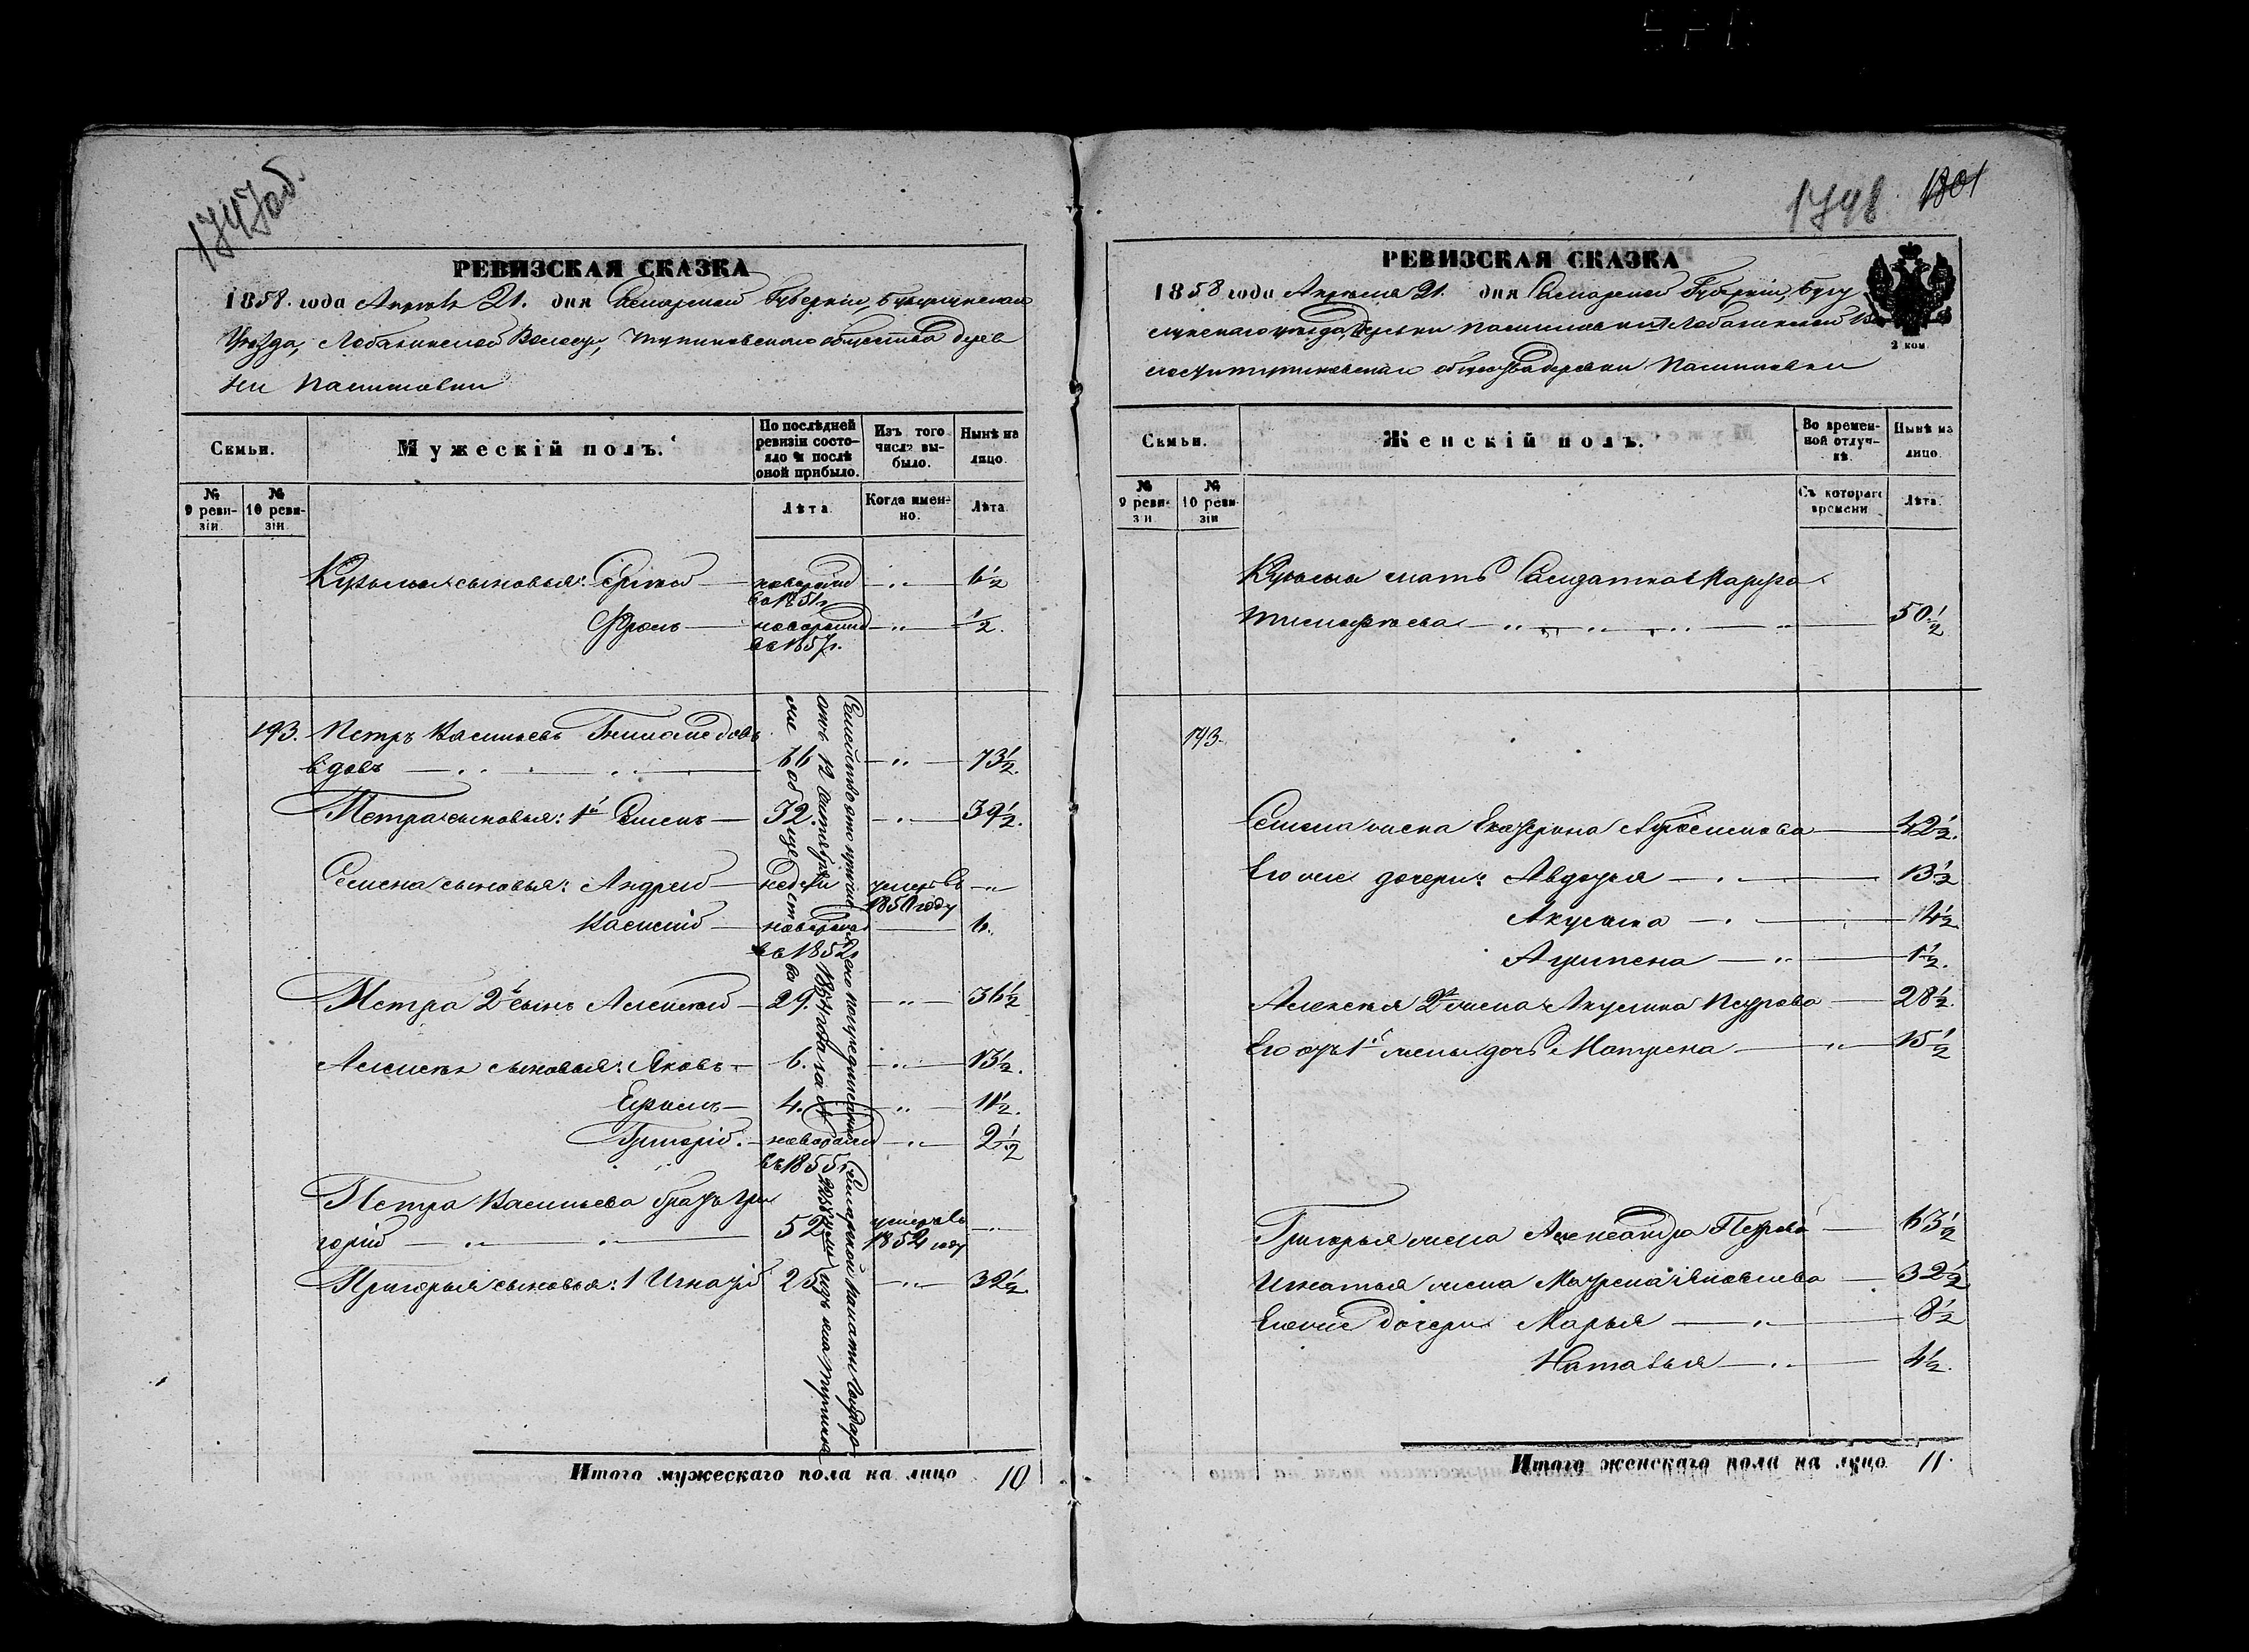 1747об.
РЕВИЗСКАЯ СКАЗКА
1858 года Апреля 21. дня Самарской Губернiи, Бугурусланскаго
Уѣзда, Лобазинской Волости, общества дерев
ни Пашиловки
Семьи.
Мужескiй полъ.
По послѣдней
ревизiи состо-
яло и послѣ
оной прибыло.
Изъ того
числа вы-
было.
Нынѣ на
лицо.
№
9 реви-
зiи.
№
10 реви-
зiи.
Лѣта.
Когда имен-
но.
Лѣта.
Кузьмы сыновья: Сергѣй новорожд во 1851 г. 6½
Фролъ новорожд во 1857 г. ½
193. Петръ Васильевъ
вдовъ 66 73½
Петра сыновья: 1й Семенъ 32. 39½
Семена сыновья: Андрей недели умеръ въ 1850 году
Василiй новорожд во 1852 6
Петра 2й сынъ Алексѣй 29. 36½
Алексѣя сыновья: Яковъ 6. 13½
Ефимъ 4. 11½
Григорiй. новорожд въ 1855 2½
Петра Васильева братъ Гри
горiй 52 умеръ въ 1852 году
Григорья сыновья: 1 Игнатiй 25 32½
Семейство это причислено по предписанiю Самарской Палаты Государ
отъ 12 Сентября 1857 года за № изъ
же общества
Итого мужескаго пола на лицо 10
1748 1801
РЕВИЗСКАЯ СКАЗКА
1858 года Апреля 21. дня Самарской Губернiи, Бугу
русланскаго уѣзда, Лобазинской
общества деревни Пашиловки
2 коп.
Семьи.
Женскiй полъ.
Во времен-
ной отлуч-
кѣ.
Нынѣ на
лицо.
№
9 реви-
зiи
№
10 реви-
зiи
Съ котораго
времени
Лѣта.
Кузьмы мать Солдатка
Тимофѣева 50½
193.
Семена жена Екатерина 42½
Его же дочери: Авдотья 13½
Акулина 4½
Агрипена 1½
Алексѣя 2я жена Акулина Петрова 28½
Его отъ 1й жены дочь Матрена 15½
Григорья жена Александра Петрова 63½
Игнатья жена Матрена Яковлева 32½
Его же дочери Марья 8½
Наталья 4½
Итого женскаго пола на лицо 11.